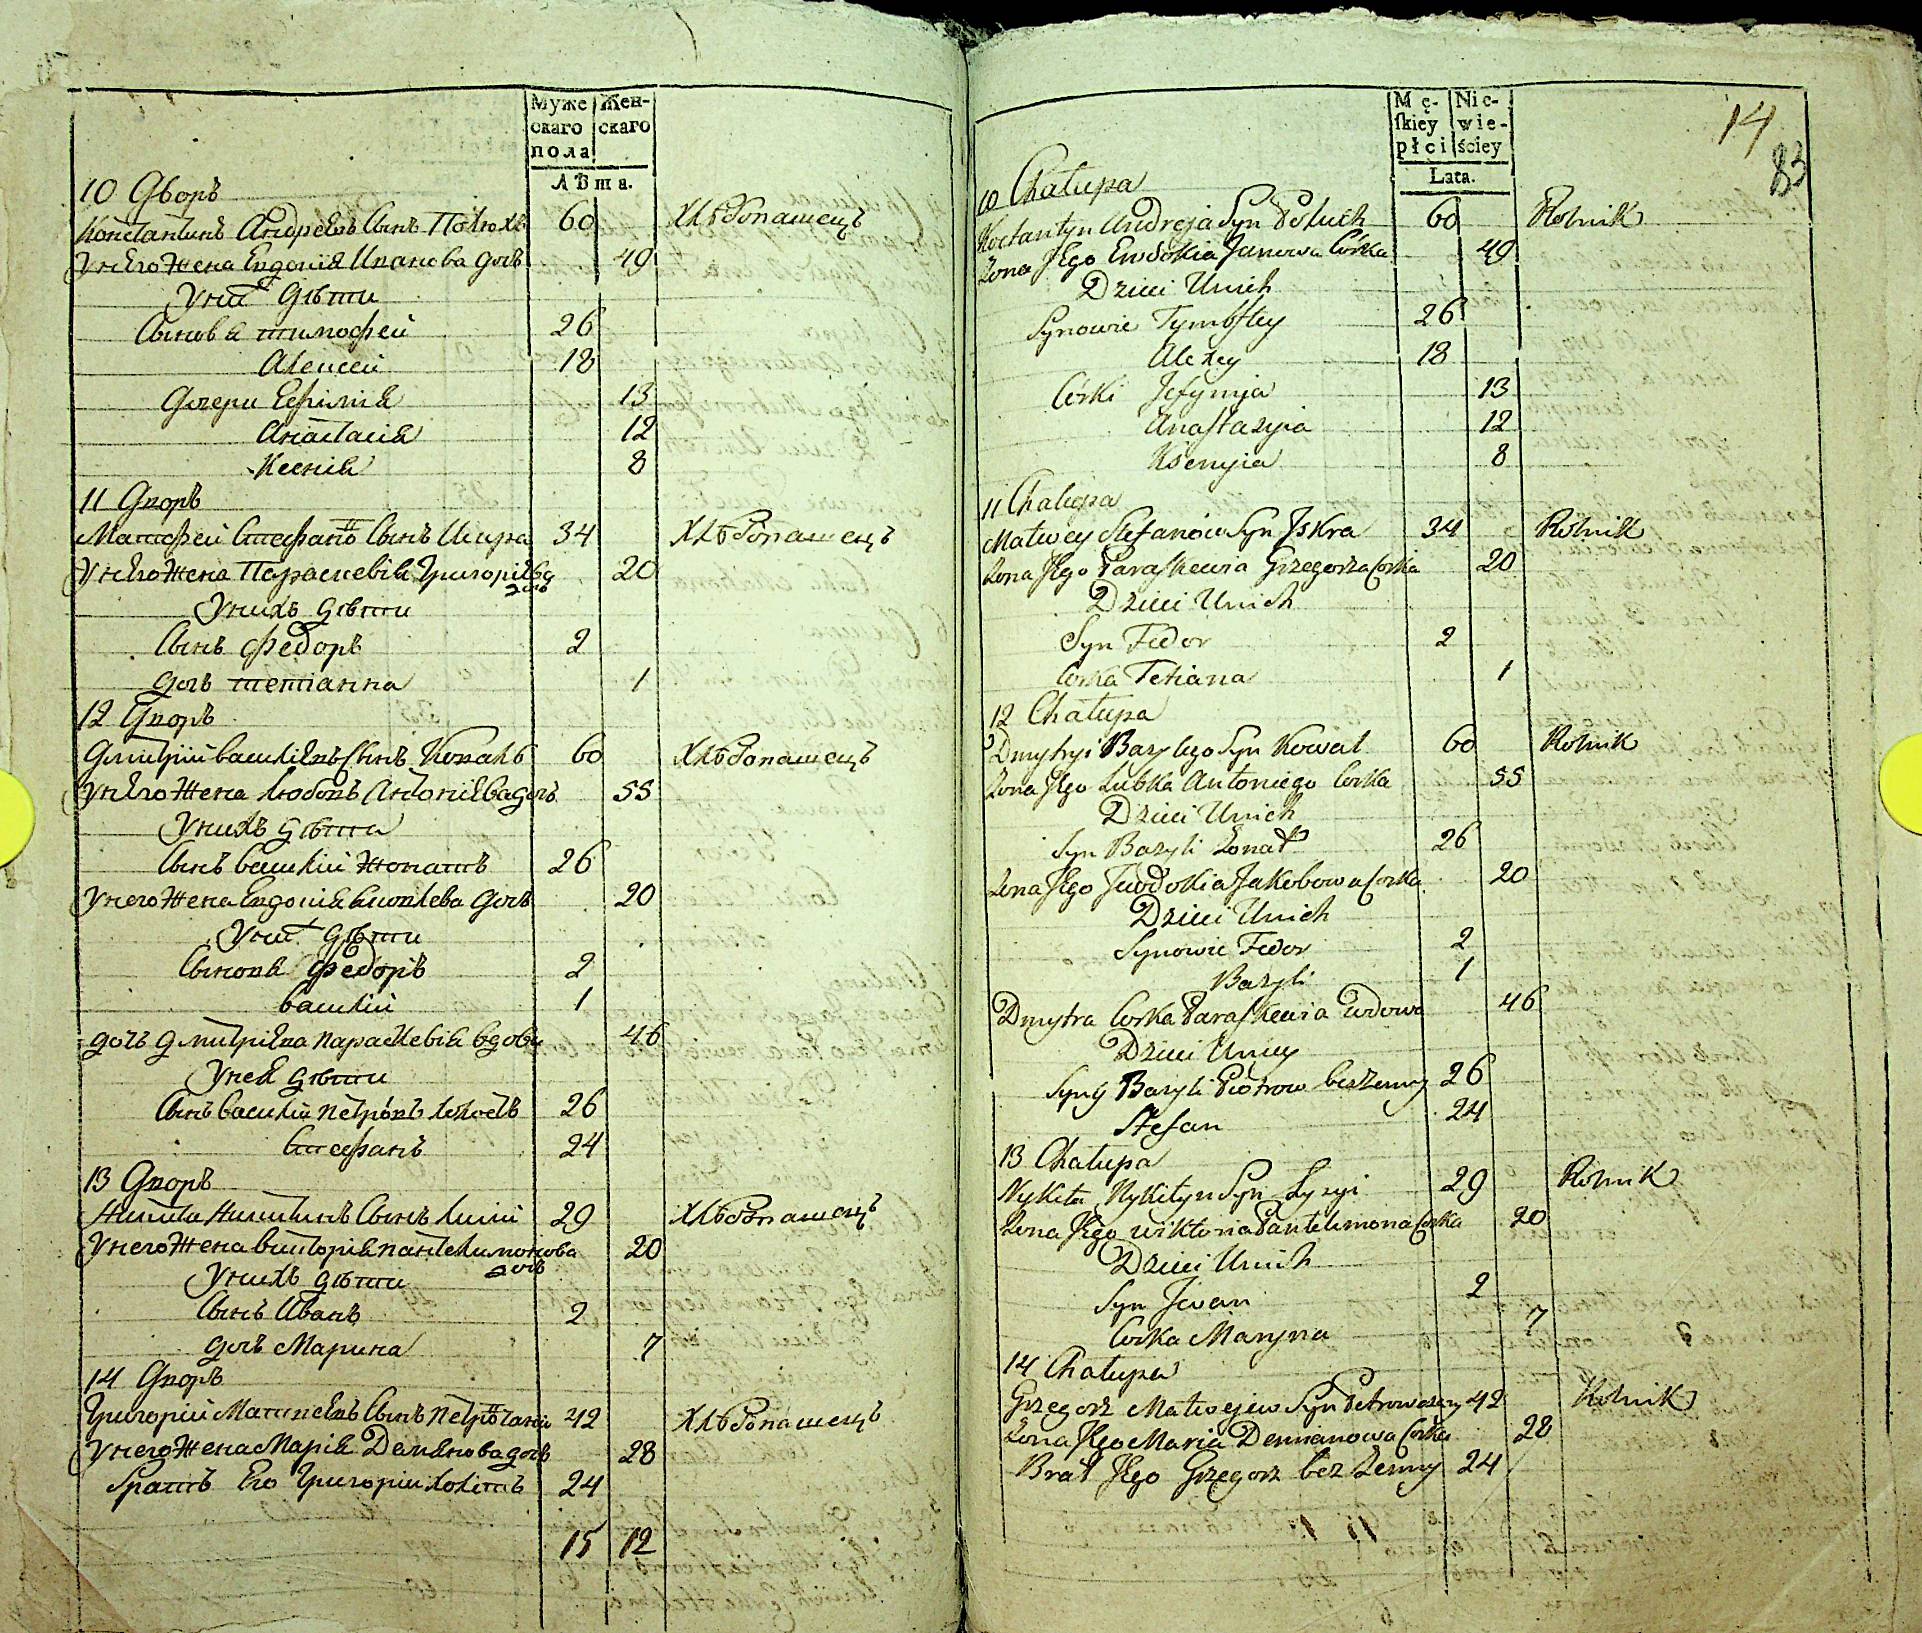 Муже
скаго
пола
Жен-
скаго
Лѣта.
10 Дворъ
Константинъ Андреевъ Сынъ Полюхъ 60 Хлѣбопашецъ
У него Жена Евдокія Иванова дочь 49
У них Дѣти
Сыновя тимофей 26
Алексей 18
Дочери Ефимія 13
Анастасія 12
Ксенія 8
11 Дворъ
Матфей Стефановъ Сынъ Искра 34 Хлѣбопашецъ
У него Жена Параскевія Григоріева дочь 20
У нихъ Дѣти
Сынъ Федоръ 2
дочь тетіанна 1
12 Дворъ
Дмитрій василіевъ Сынъ Коваль 60 Хлѣбопашецъ
У него Жена Любовь Антоніева дочь 55
У нихъ Дѣти
Сынъ василій Жонатъ 26
У него Жена Евдокія Яковлева дочь 20
У них Дѣти
Сыновя Федоръ 2
василій 1
дочь дмитріева параскевія вдова 46
У нея дѣти
Сынъ василій петровъ холостъ 26
Стефанъ 24
13 Дворъ
Никита Никитинъ Сынъ Лисій 29 Хлѣбопашецъ
У него Жена викторія пантелимонова дочь 20
У нихъ дѣти
Сынъ Иванъ 2
дочь Марина 7
14 Дворъ
Григорій Матвеевъ Сынъ 42 Хлѣбопашецъ
У него Жена Марія Демянова дочь 28
братъ Его Григорій холостъ 24
15 12
Mę-
skiey
płci
Nie-
wie-
ściey
Lata.
14
83
10 Chałupa
Kostantyn Andreja Syn Poluch 60 Rolnik
Zona Jego Ewdokia Janowa Córka 49
Dzieci Unich
Synowie Tymofiey 26
Alexey 18
Córki Jefymja 13
Anastazyia 12
Ksenyia 8
11 Chałupa
Matwey Stefanów Syn Jskra 34 Rolnik
Zona Jego Paraskewia Grzegorza Corka 20
Dzieci Unich
Syn Fedor 2
Corka Tetiana 1
12 Chałupa
Dmytryi Bazylego Syn Kowal 60 Rolnik
Zona Jego Lubka Antoniego Corka 55
Dzieci Unich
Syn Bazyli Zonat 26
Zona Jego Jewdokia Jakobowa Corka 20
Dzieci Unich
Synowie Fedor 2
Bazyli 1
Dmytra Corka Paraskewia Wdowa 46
Dzieci Uniey
Syny Bazyli Piotrow bezzenny 26
Stefan 24
13 Chałupa
Nykita Nykityn Syn Lysyi 29 Rolnik
Zona Jego wiktoria Pantelimona Corka 20
Dzieci Unich
Syn Jwan 2
Corka Maryna 7
14 Chałupa
Grzegorz Matwejew Syn 42 Rolnik
Zona Jego Maria Demianowa Corka 28
Brat Jego Grzegorz bez Zenny 24